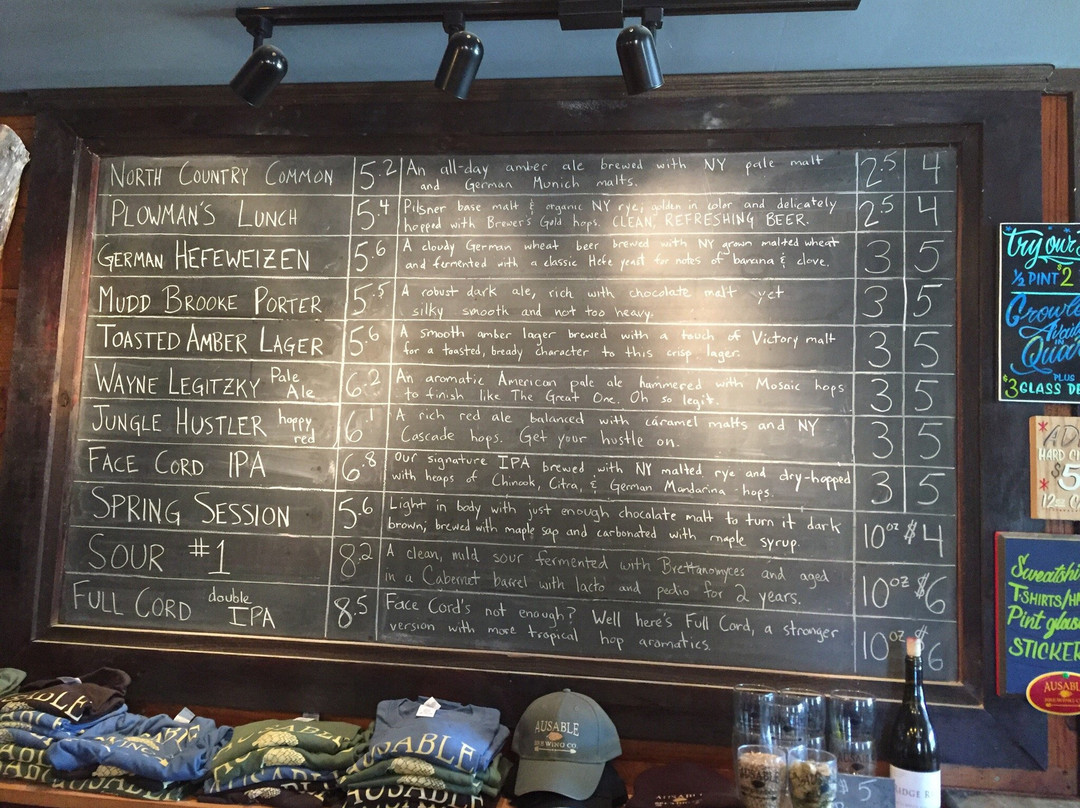 NORTH COUNTRY COMMON 5.2 An all-day amber ale brewed with NY pale malt 2.5 4
and German Munich malts.
PLOWMAN'S LUNCH 5.4 Pilsner base malt & organic NY rye; golden in color and delicately 2.5 4
hopped with Brewer's Gold hops. CLEAN, REFRESHING BEER.
GERMAN HEFEWEIZEN 5.6 A cloudy German wheat beer brewed with NY grown malted wheat 3 5
and fermented with a classic Hefe yeast for notes of banana & clove.
MUDD BROOKE PORTER 5.5 A robust dark ale, rich with chocolate malt yet 3 5
silky smooth and not too heavy.
TOASTED AMBER LAGER 5.6 A smooth amber lager brewed with a touch of Victory malt 3 5
for a toasted, bready character to this crisp lager.
WAYNE LEGITZKY Pale Ale 6.2 An aromatic American pale ale hammered with Mosaic hops 3 5
to finish like The Great One. Oh so legit.
JUNGLE HUSTLER hoppy red 6.1 A rich red ale balanced with caramel malts and NY 3 5
Cascade hops. Get your hustle on.
FACE CORD IPA 6.8 Our signature IPA brewed with NY malted rye and dry-hopped 3 5
with heaps of Chinook, Citra, & German Mandarina hops.
SPRING SESSION 5.6 Light in body with just enough chocolate malt to turn it dark 10oz $4
brown; brewed with maple sap and carbonated with maple syrup.
SOUR #1 8.2 A clean, mild sour fermented with Brettanomyces and aged 10oz $6
in a Cabernet barrel with lacto and pedio for 2 years.
FULL CORD double IPA 8.5 Face Cord's not enough? Well here's Full Cord, a stronger 10oz $6
version with more tropical hop aromatics.
Try our
½ PINT $2
Growle
Avail
IN
Quar
PLUS
$3 GLASS DE
AD
HARD C
$5
12oz
Sweatshi
T-SHIRTS/HA
Pint glas
STICKER
AUSABL
AUSABLE
BREWING CO.
AUSABLE
AUSABLE
$5